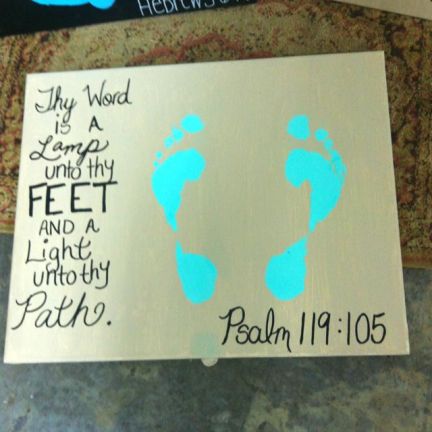 Hebrews
Thy Word
is A
Lamp
unto thy
FEET
AND A
Light
unto thy
Path.
Psalm 119:105